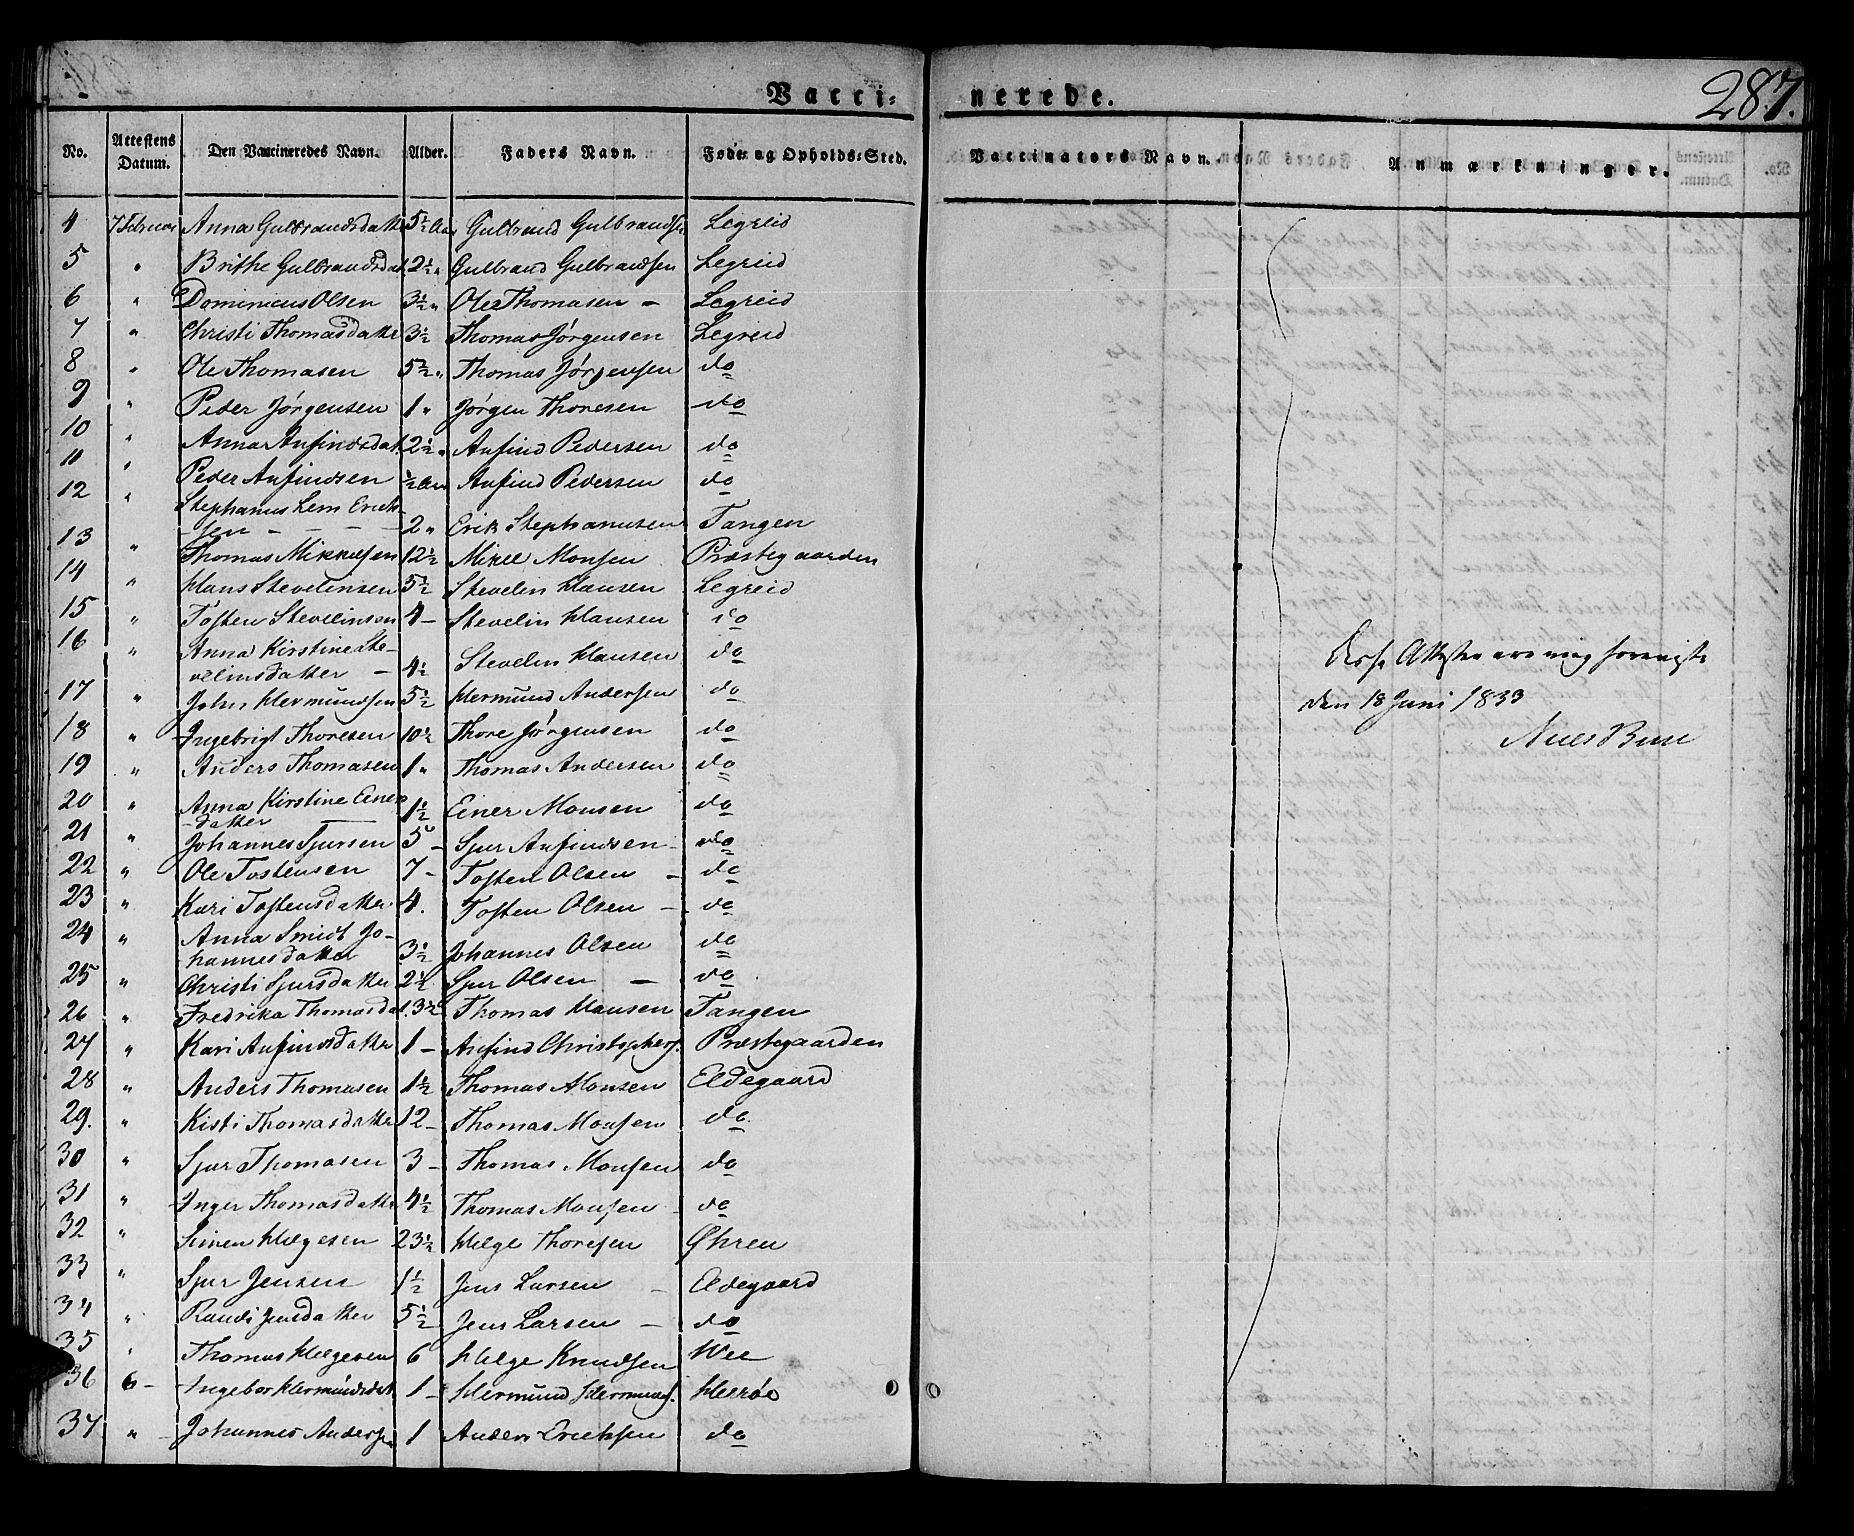 Vacci- nerede. 287.
No. Attestens Datum. Den Vaccineredes Navn. Alder. Faders Navn. Føde- og Opholds-Sted. Vaccinators Navn. Anmærkninger.
4 7 Februar Anna Gulbrandsdatter 5½ Aar Gulbrand Gulbrandsen Legreid
5 " Brithe Gulbrandsdat 2½ " Gulbrand Gulbrandsen Legreid
6 " Dominicus Olsen 3½ " Ole Thomasen - Legreid
7 " Christi Thomasdatter 3½ Thomas Jørgensen Legreid
8 " Ole Thomasen 5½ " Thomas Jørgensen do
9 " Peder Jørgensen 1 " Jørgen Thoresen do
10 " Anna Anfindsdat 2½ " Anfind Pedersen do
11 " Peder Anfindsen ½ Aar Anfind Pedersen do
12 " Stephanus Lem Erick-
sen - - - 2 " Erik Stephanusen Tangen
13 " Thomas Mikkelsen 12½ Mikel Monsen Præstegaarden
14 " Hans Stevelinsen 5½ Stevelin Hansen Legreid
15 " Tosten Stevelinsen 4 - Stevelin Hansen do
16 " Anna Kirstine Ste-
velinsdatter - 4½ Stevelin Hansen do
17 " John Hermundsen 5½ Hermund Andersen do
18 " Ingebrigt Thoresen 10½ Thore Jørgensen do
19 " Anders Thomasen 1 " Thomas Andersen do
20 " Anna Kirstine Einers
-datter 1½ Einer Monsen do
21 " Johannes Sjursen 5 - Sjur Anfindsen - do
22 " Ole Tostensen 7 - Tosten Olsen - do
23 " Kari Tostensdatter 4. Tosten Olsen - do
24 " Anna Smidt Jo-
hannesdatter 3½ Johannes Olsen do
25 " Christi Sjursdatter 2½ Sjur Olsen - do
26 " Fredrika Thomasdat. 3½ Thomas Hansen Tangen
27 " Kari Anfindsdatter 1 - Anfind Christophers. Præstegaarden
28 " Anders Thomasen 1½ Thomas Monsen Eldegaard
29. " Kisti Thomasdatter 12 - Thomas Monsen do
30 " Sjur Thomasen 3 - Thomas Monsen do
31 " Inger Thomasdatter 4½ Thomas Monsen - do
32 " Simen Helgesen 23½ Helge Thoresen Øhren
33 " Sjur Jensen 1½ Jens Larsen - Eldegaard
34 " Randi Jensdatter 5½ Jens Larsen - do
35 " Thomas Helgesen 6 Helge Knudsen Wee
36 6 - Ingebor Hermundsdat 1 - Hermund Hermunds. Herröe
37 " Johannes Andersen 1 Anders Erichsen do
Disse Attester ere mig foreviiste
den 18 Juni 1833